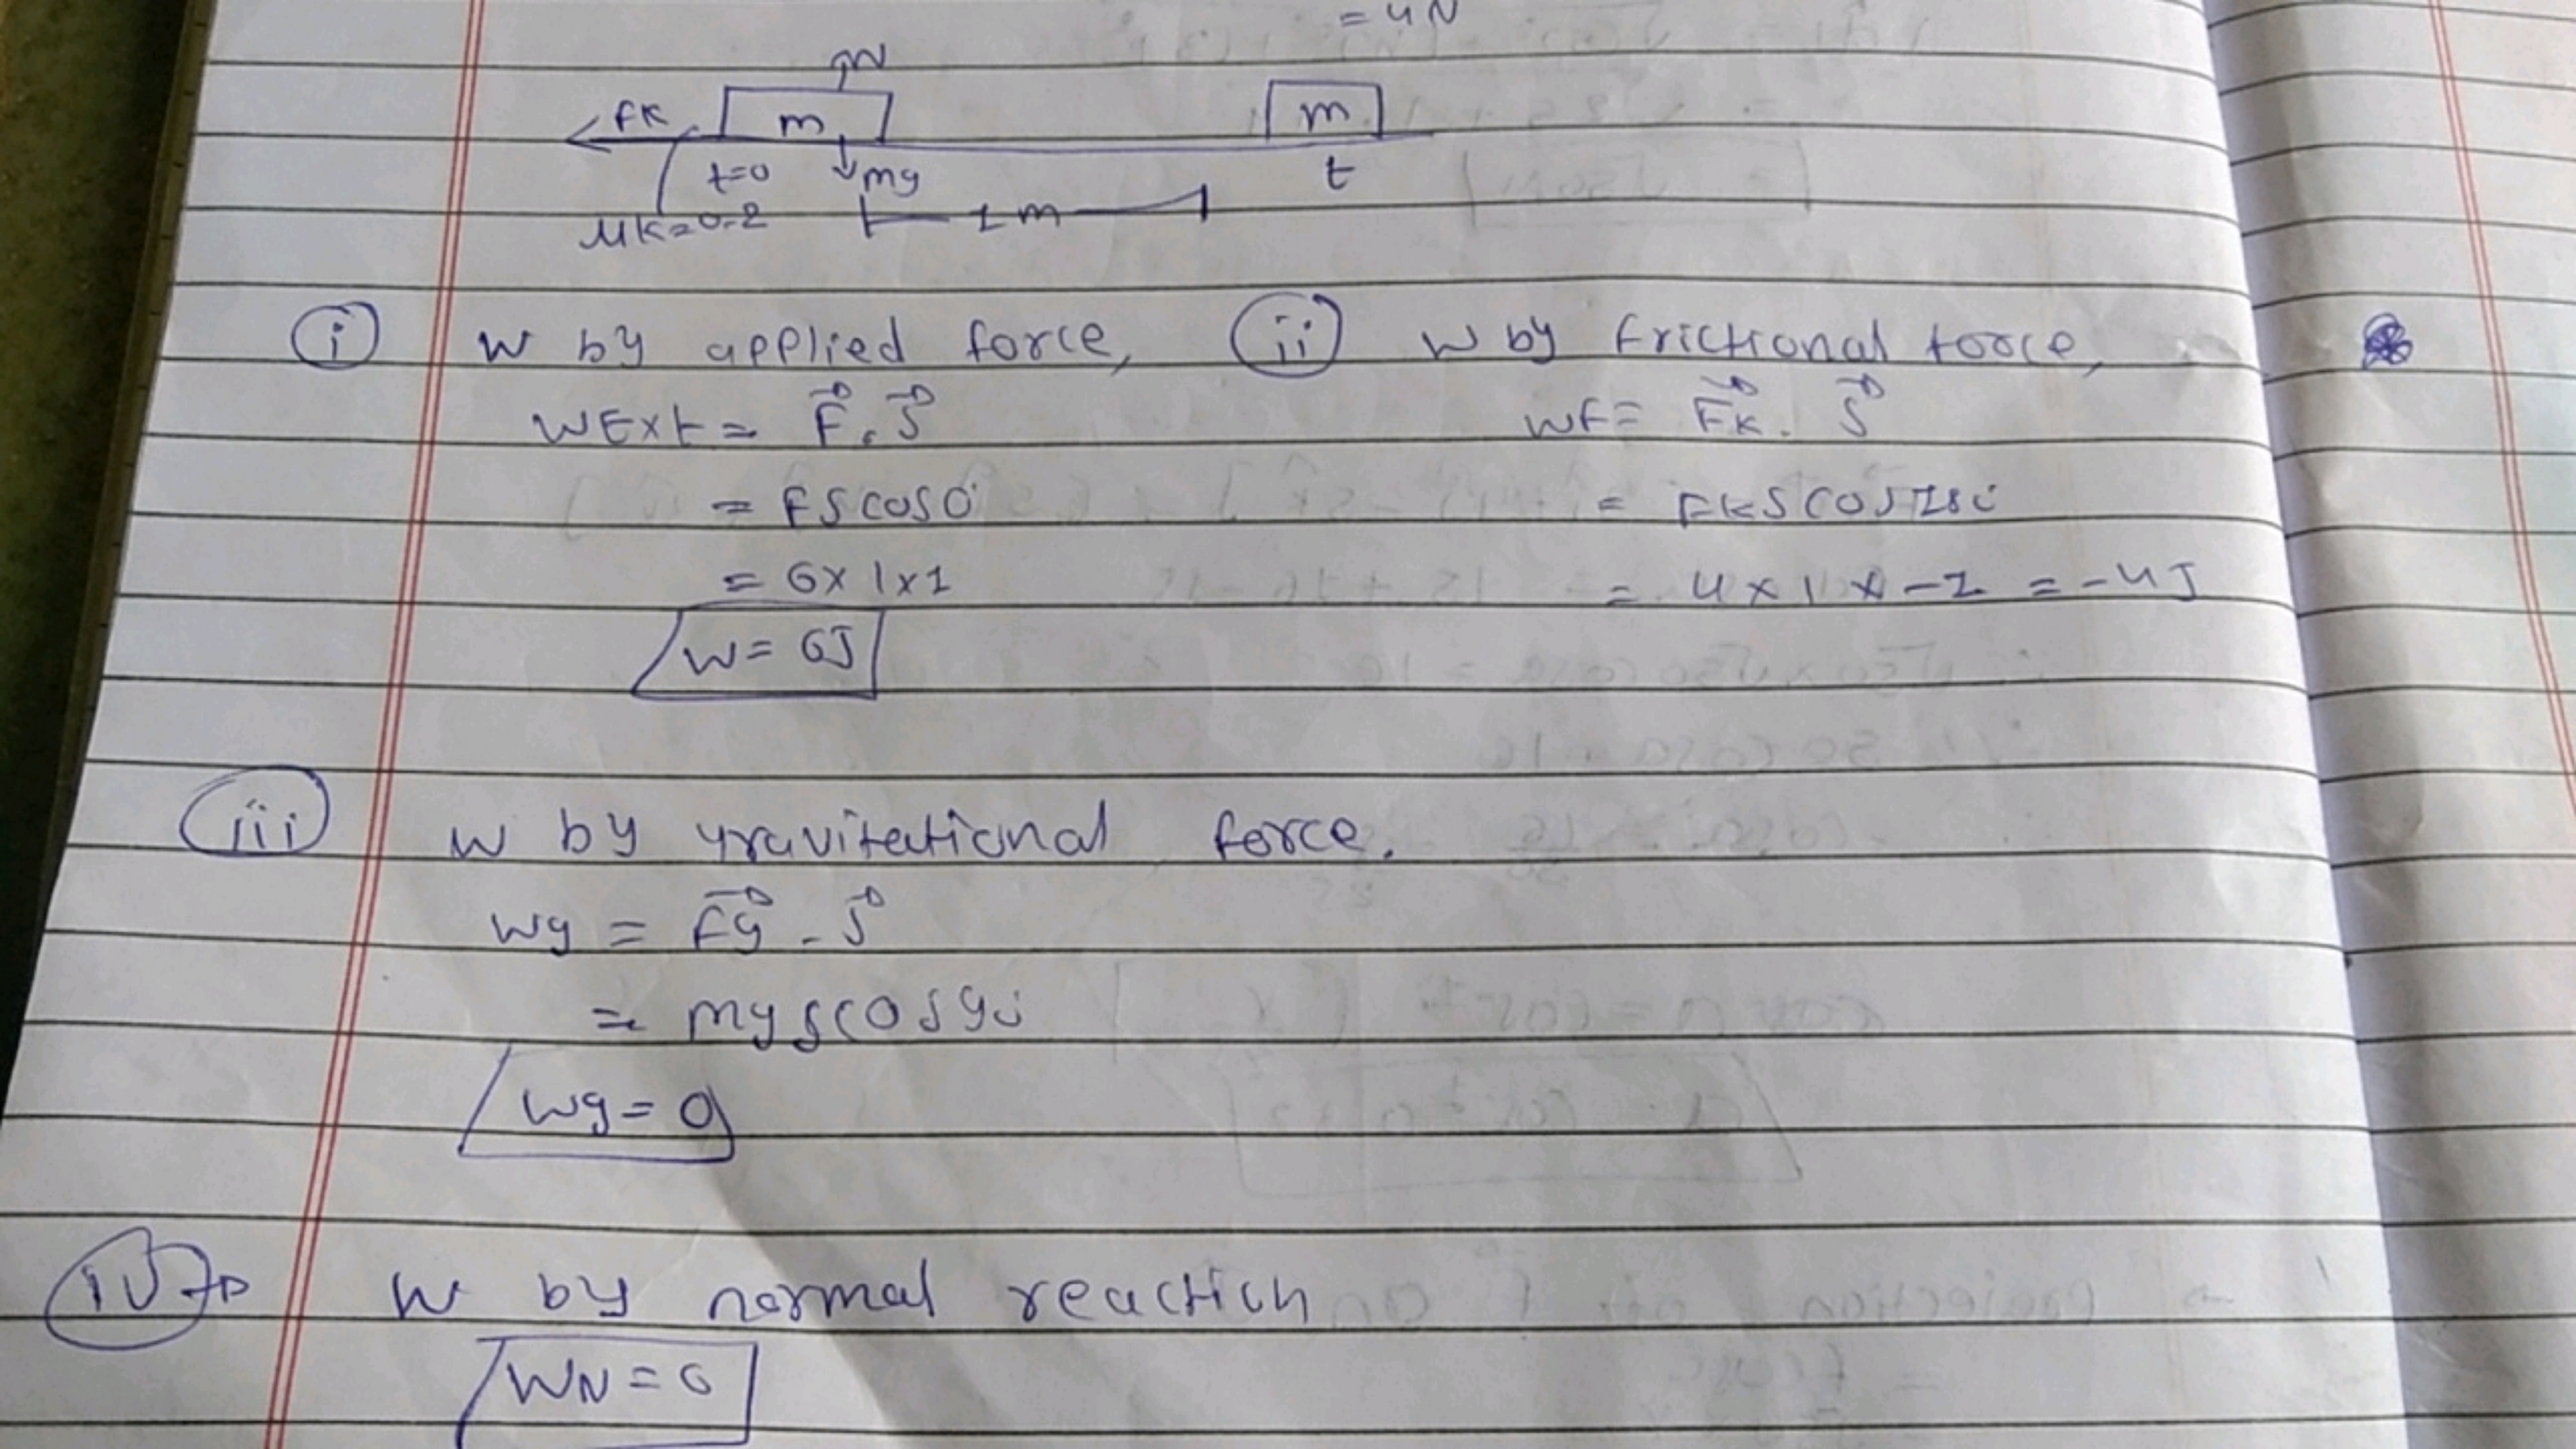 = 4N
N
fk
m
m
t=0
mg
t
μk=0.2
1m
(i) W by applied force,
WExt = F⃗. S⃗
= FScos0°
= 6x1x1
W= 6J
(ii) W by frictional force,
Wf= F⃗k. S⃗
= FkScos180
= 4x1x-1 = -4J
(iii) W by gravitational force.
Wg = F⃗g . S⃗
= mgscos90
Wg= 0
(iv) → W by normal reaction
WN = 0